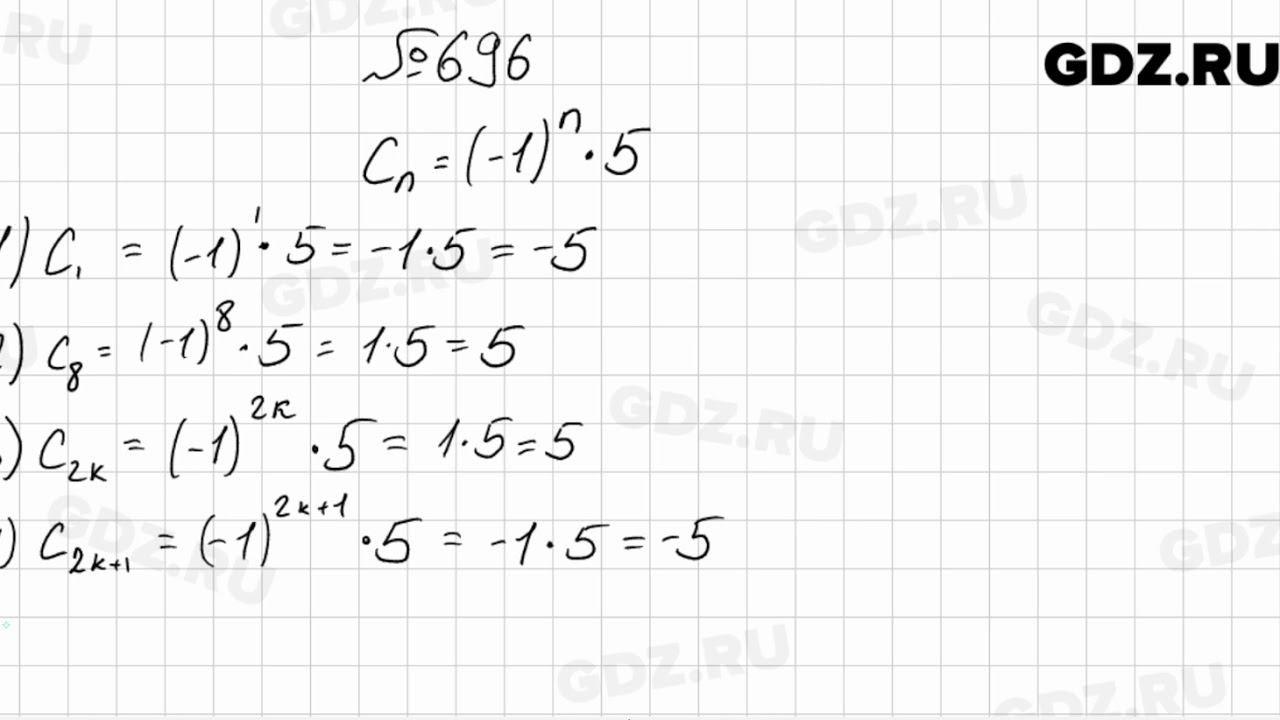 №696
GDZ.RU
Cₙ = (-1)ⁿ · 5
1) C₁ = (-1)¹ · 5 = -1 · 5 = -5
) C₈ = (-1)⁸ · 5 = 1 · 5 = 5
) C₂ₖ = (-1)²ᵏ · 5 = 1 · 5 = 5
) C₂ₖ₊₁ = (-1)²ᵏ⁺¹ · 5 = -1 · 5 = -5